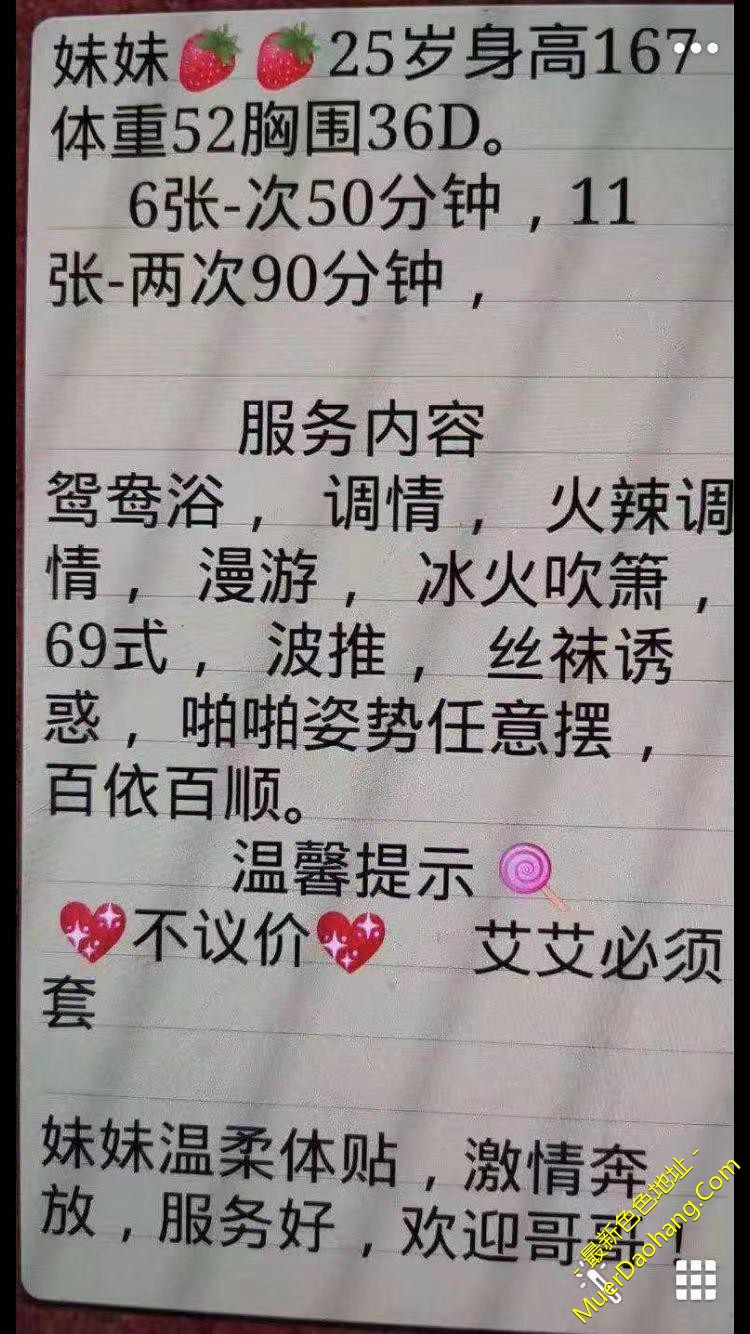 妹妹🍓🍓25岁身高167
体重52胸围36D。
6张-次50分钟，11
张-两次90分钟，
服务内容
鸳鸯浴， 调情， 火辣调
情， 漫游， 冰火吹箫，
69式， 波推， 丝袜诱
惑， 啪啪姿势任意摆，
百依百顺。
温馨提示🍭
💖不议价💖 艾艾必须
套
妹妹温柔体贴，激情奔
放，服务好，欢迎哥哥！
- 最新色色地址 -
MuerDaohang.Com